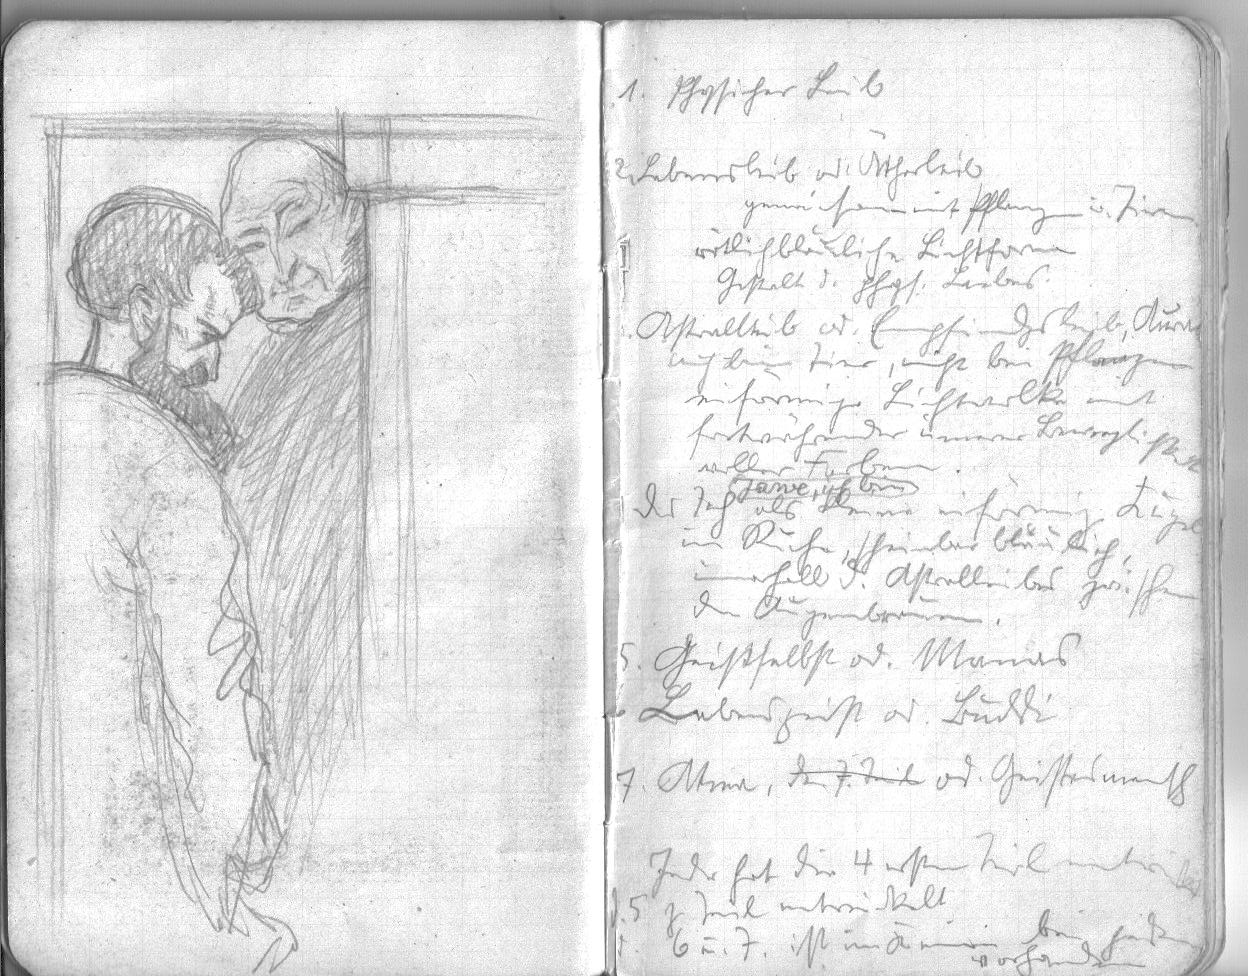 1. Physicher Leib
2. Lebensleib od. Ätherleib
gemeinsam mit Pflanzen u. Tieren
rötlichbläuliche Lichtform
Gestalt d. phys. Leibes.
Astralleib od. Empfindungsleib, Aura
auch beim Tier, nicht bei Pflanzen
eiförmige Lichtwolke mit
fortwährender innerer Beweglichkeit
voller Farben.
Jawe, ich bin
Das Ich als kleine eiförmig. Kugel
im Ruhe, scheinbar bläulich,
innerhalb d. Astralleibes zwischen
den Augenbrauen.
5. Geistselbst od. Manas
Lebensgeist od. Buddi
7. Atma, der 7. Teil od. Geistesmensch
Jeder hat die 4 ersten Teile entwickelt
d. 5 z Teil entwickelt
6 u. 7. ist im Keim bei jedem
vorhanden